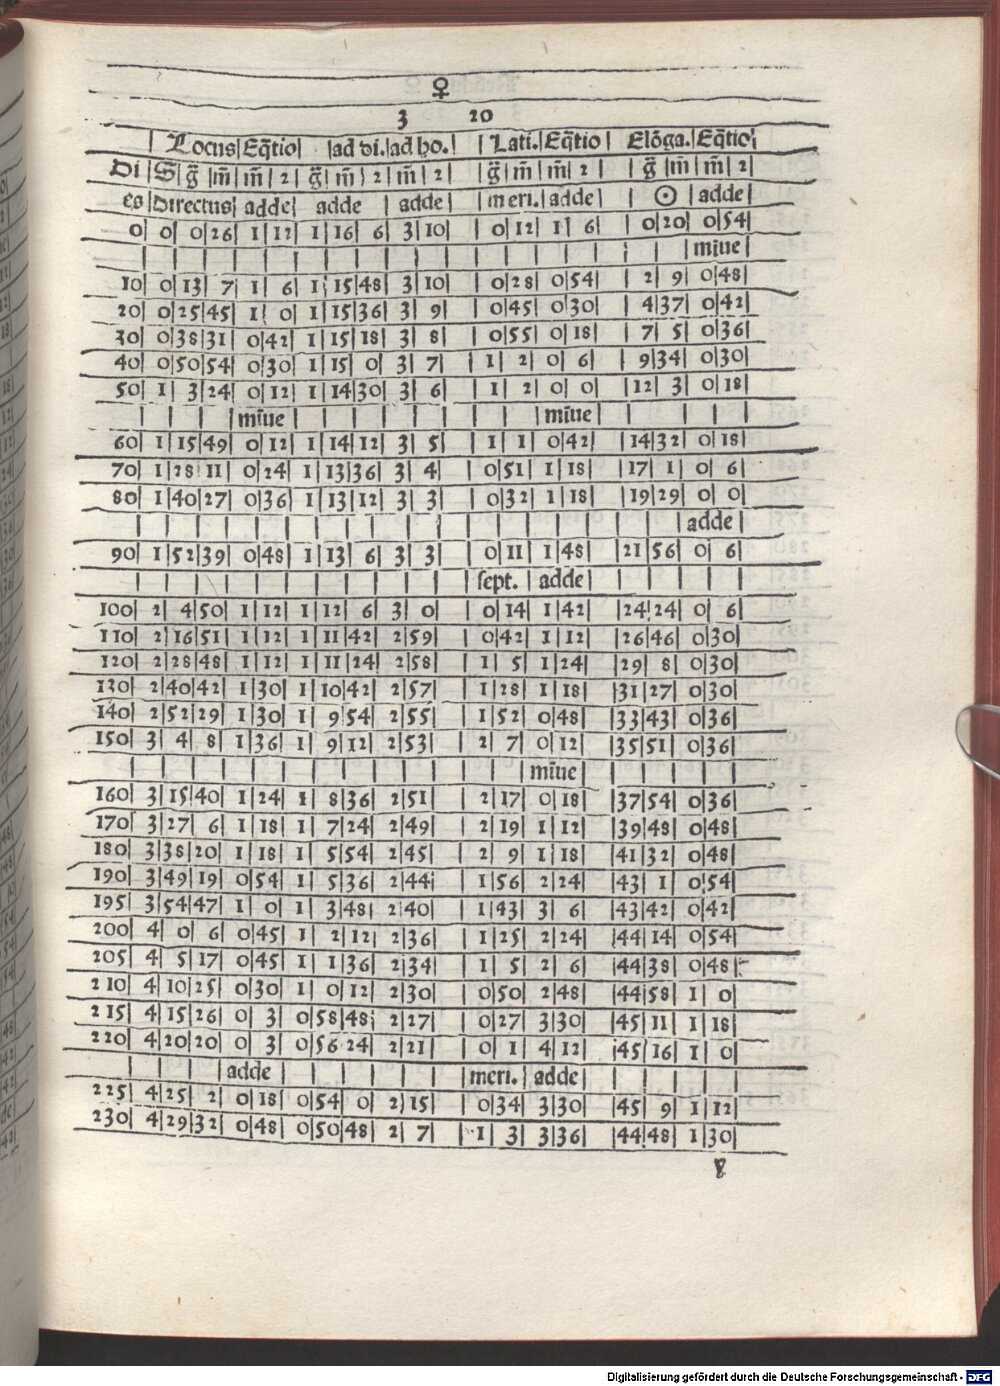 ♀
3 20
Locus | Eq̃tio | ad di. | ad ho. | Lati. | Eq̃tio | Elōga. | Eq̃tio
Di | S | g̃ | m̃ | m̃ | 2 | g̃ | m̃ | 2 | m̃ | 2 | g̃ | m̃ | m̃ | 2 | g̃ | m̃ | m̃ | 2
es | Directus | adde | adde | adde | meri. | adde | ☉ | adde
0 | 0 | 0 | 26 | 1 | 12 | 1 | 16 | 6 | 3 | 10 | 0 | 12 | 1 | 6 | 0 | 20 | 0 | 54
miue
10 | 0 | 13 | 7 | 1 | 6 | 1 | 15 | 48 | 3 | 10 | 0 | 28 | 0 | 54 | 2 | 9 | 0 | 48
20 | 0 | 25 | 45 | 1 | 0 | 1 | 15 | 36 | 3 | 9 | 0 | 45 | 0 | 30 | 4 | 37 | 0 | 42
30 | 0 | 38 | 31 | 0 | 42 | 1 | 15 | 18 | 3 | 8 | 0 | 55 | 0 | 18 | 7 | 5 | 0 | 36
40 | 0 | 50 | 54 | 0 | 30 | 1 | 15 | 0 | 3 | 7 | 1 | 2 | 0 | 6 | 9 | 34 | 0 | 30
50 | 1 | 3 | 24 | 0 | 12 | 1 | 14 | 30 | 3 | 6 | 1 | 2 | 0 | 0 | 12 | 3 | 0 | 18
miue | miue
60 | 1 | 15 | 49 | 0 | 12 | 1 | 14 | 12 | 3 | 5 | 1 | 1 | 0 | 42 | 14 | 32 | 0 | 18
70 | 1 | 28 | 11 | 0 | 24 | 1 | 13 | 36 | 3 | 4 | 0 | 51 | 1 | 18 | 17 | 1 | 0 | 6
80 | 1 | 40 | 27 | 0 | 36 | 1 | 13 | 12 | 3 | 3 | 0 | 32 | 1 | 18 | 19 | 29 | 0 | 0
adde
90 | 1 | 52 | 39 | 0 | 48 | 1 | 13 | 6 | 3 | 3 | 0 | 11 | 1 | 48 | 21 | 56 | 0 | 6
sept. | adde
100 | 2 | 4 | 50 | 1 | 12 | 1 | 12 | 6 | 3 | 0 | 0 | 14 | 1 | 42 | 24 | 24 | 0 | 6
110 | 2 | 16 | 51 | 1 | 12 | 1 | 11 | 42 | 2 | 59 | 0 | 42 | 1 | 12 | 26 | 46 | 0 | 30
120 | 2 | 28 | 48 | 1 | 12 | 1 | 11 | 24 | 2 | 58 | 1 | 5 | 1 | 24 | 29 | 8 | 0 | 30
130 | 2 | 40 | 42 | 1 | 30 | 1 | 10 | 42 | 2 | 57 | 1 | 28 | 1 | 18 | 31 | 27 | 0 | 30
140 | 2 | 52 | 29 | 1 | 30 | 1 | 9 | 54 | 2 | 55 | 1 | 52 | 0 | 48 | 33 | 43 | 0 | 36
150 | 3 | 4 | 8 | 1 | 36 | 1 | 9 | 12 | 2 | 53 | 2 | 7 | 0 | 12 | 35 | 51 | 0 | 36
miue
160 | 3 | 15 | 40 | 1 | 24 | 1 | 8 | 36 | 2 | 51 | 2 | 17 | 0 | 18 | 37 | 54 | 0 | 36
170 | 3 | 27 | 6 | 1 | 18 | 1 | 7 | 24 | 2 | 49 | 2 | 19 | 1 | 12 | 39 | 48 | 0 | 48
180 | 3 | 38 | 20 | 1 | 18 | 1 | 5 | 54 | 2 | 45 | 2 | 9 | 1 | 18 | 41 | 32 | 0 | 48
190 | 3 | 49 | 19 | 0 | 54 | 1 | 5 | 36 | 2 | 44 | 1 | 56 | 2 | 24 | 43 | 1 | 0 | 54
195 | 3 | 54 | 47 | 1 | 0 | 1 | 3 | 48 | 2 | 40 | 1 | 43 | 3 | 6 | 43 | 42 | 0 | 42
200 | 4 | 0 | 6 | 0 | 45 | 1 | 2 | 12 | 2 | 36 | 1 | 25 | 2 | 24 | 44 | 14 | 0 | 54
205 | 4 | 5 | 17 | 0 | 45 | 1 | 1 | 36 | 2 | 34 | 1 | 5 | 2 | 6 | 44 | 38 | 0 | 48
210 | 4 | 10 | 25 | 0 | 30 | 1 | 0 | 12 | 2 | 30 | 0 | 50 | 2 | 48 | 44 | 58 | 1 | 0
215 | 4 | 15 | 26 | 0 | 3 | 0 | 58 | 48 | 2 | 27 | 0 | 27 | 3 | 30 | 45 | 11 | 1 | 18
220 | 4 | 20 | 20 | 0 | 3 | 0 | 56 | 24 | 2 | 21 | 0 | 1 | 4 | 12 | 45 | 16 | 1 | 0
adde | meri. | adde
225 | 4 | 25 | 2 | 0 | 18 | 0 | 54 | 0 | 2 | 15 | 0 | 34 | 3 | 30 | 45 | 9 | 1 | 12
230 | 4 | 29 | 32 | 0 | 48 | 0 | 50 | 48 | 2 | 7 | 1 | 3 | 3 | 36 | 44 | 48 | 1 | 30
Digitalisierung gefördert durch die Deutsche Forschungsgemeinschaft - DFG